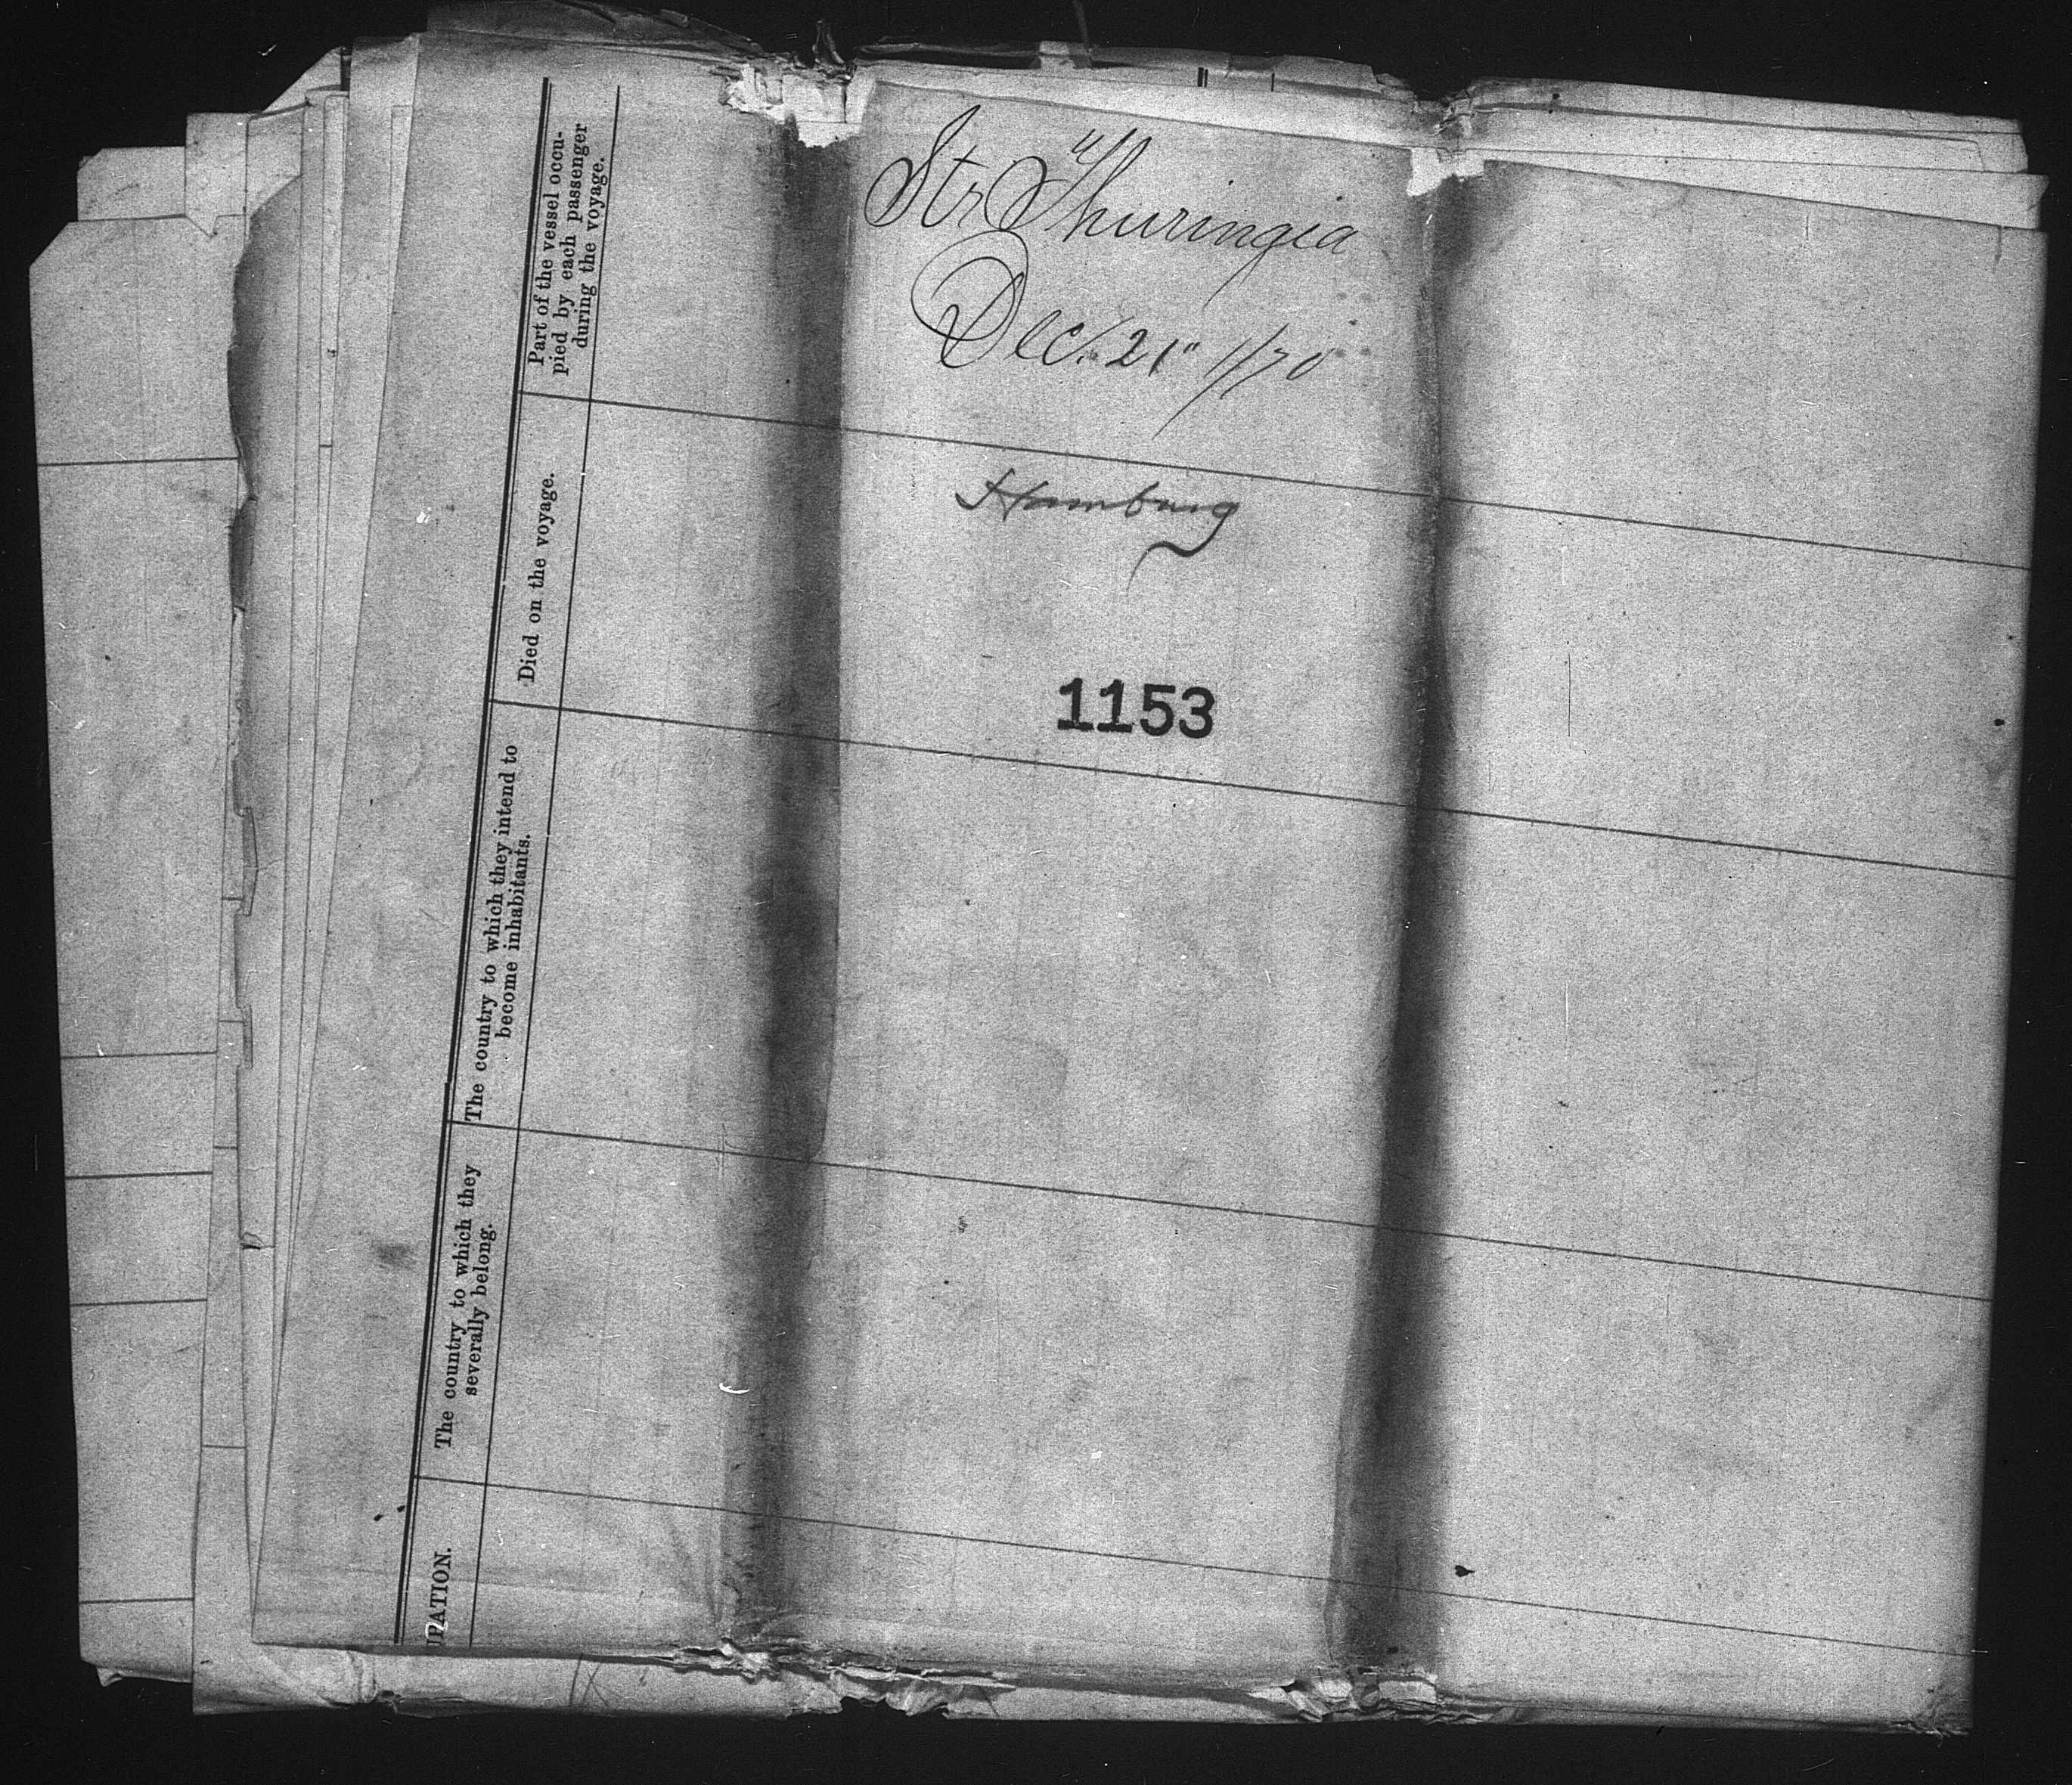 Str "Thuringia
Dec. 21" 1/70
Hamburg
1153
Part of the vessel occu-
pied by each passenger
during the voyage.
Died on the voyage.
The country to which they intend to
become inhabitants.
The country to which they
severally belong.
PATION.